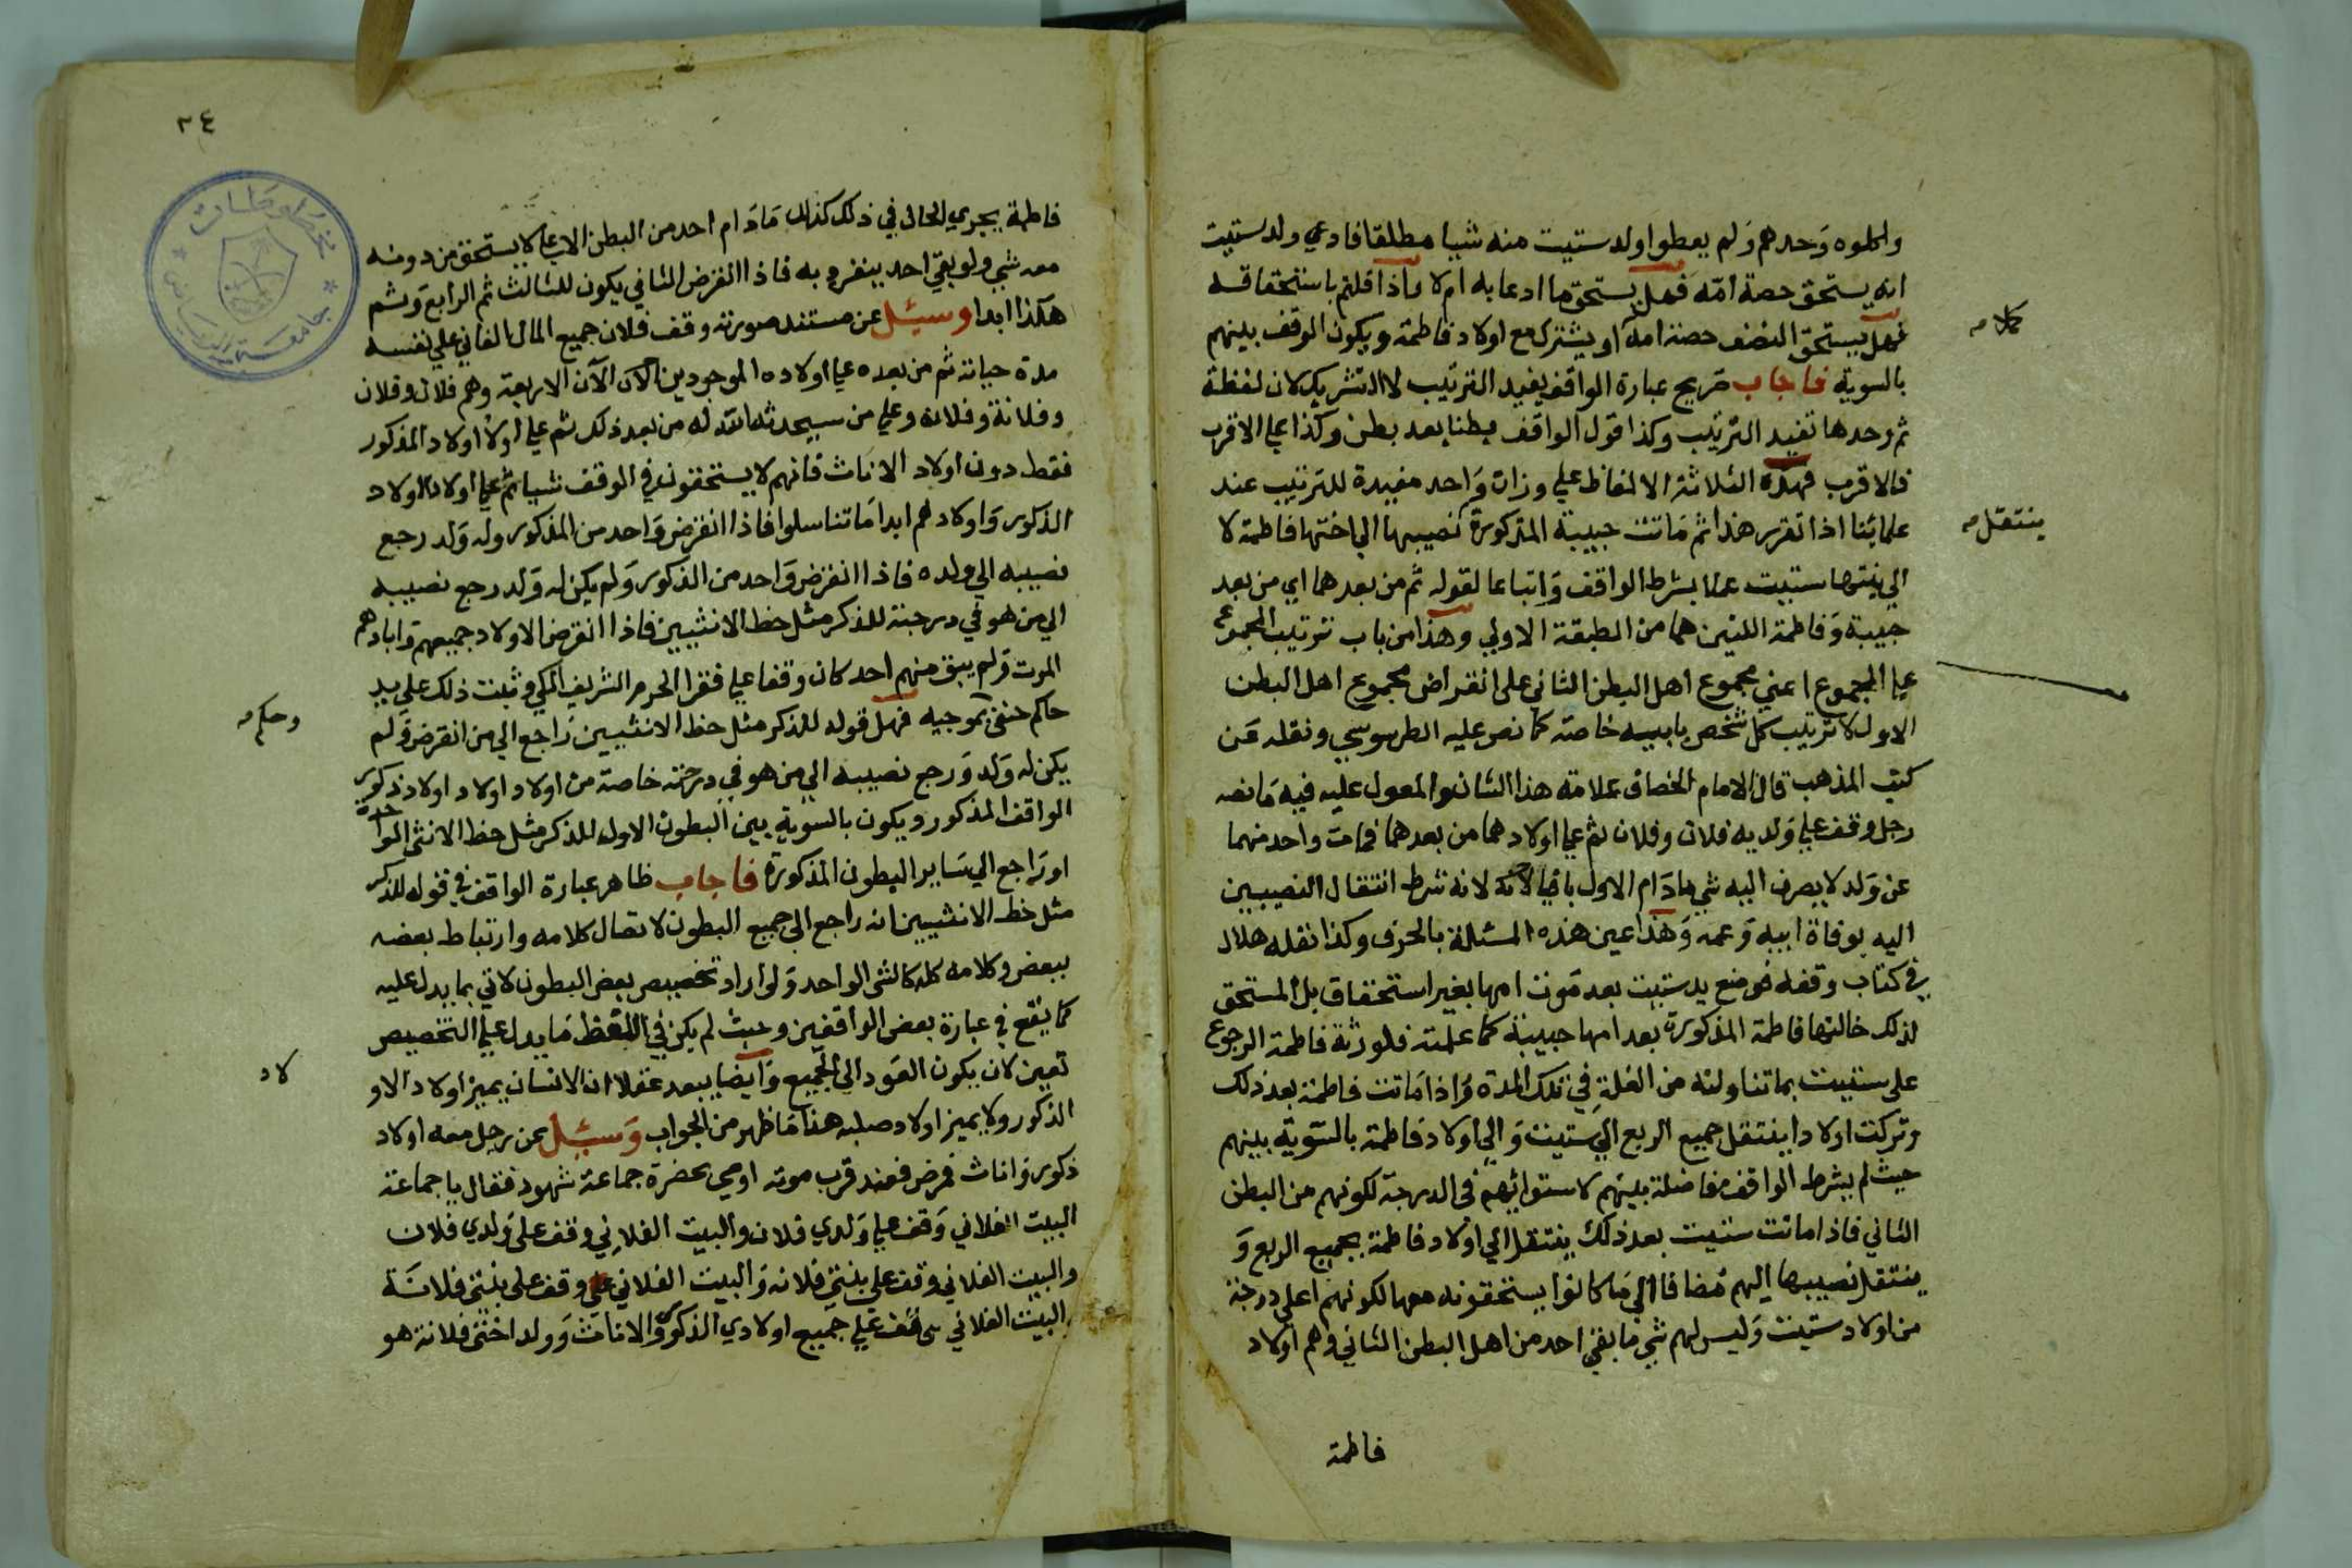 واكلوه وحدهم ولم يعطوا ولد ستيت منه شيا مطلقا فادعي ولد ستيت
انه يستحق حصة امه فهل يستحق ما ادعا به ام لا واذا قلتم باستحقاقه
فهل يستحق النصف حصة امه او يشترك مع اولاد فاطمة ويكون الوقف بينهم
كلامه
بالسوية فاجاب صريح عبارة الواقف يفيد الترتيب لا التشريك لان لفظة
ثم وحدها تفيد الترتيب وكذا قول الواقف بطنا بعد بطن وكذا علي الاقرب
فالاقرب فهذه الثلاثة الالفاظ علي وزان واحد مفيدة للترتيب عند
علمائنا اذا تقرر هذا ثم ماتت حبيبة المذكورة نصيبها الي اختها فاطمة لا
ينتقل
الي بنتها ستيت عملا بشرط الواقف واتباعا لقوله ثم من بعدهما اي من بعد
حبيبة وفاطمة اللتين هما من الطبقة الاولي وهذا من باب ترتيب المجموع
علي المجموع اعني مجموع اهل البطن الثاني على انقراض مجموع اهل البطن
الاول لا ترتيب كل شخص بابيه خاصة كما نص عليه الطرسوسي ونقله عن
كتب المذهب قال الامام الخصاف علامة هذا الشان والمعول عليه فيه ما نصه
رجل وقف علي ولديه فلان وفلان ثم علي اولادهما من بعدهما فمات واحد منهما
عن ولد لا يصرف اليه شي مادام الاول باقيا لانه شرط انتقال النصيبين
اليه بوفاة ابيه وعمه وهذا عين هذه المسئلة بالحرف وكذا نقله هلال
في كتاب وقفه فوضع يد ستيت بعد موت امها بغير استحقاق بل المستحق
لذلك خالتها فاطمة المذكورة بعد امها حبيبة كما علمته فلورثة فاطمة الرجوع
على ستيت بما تناولته من الغلة في تلك المدة واذا ماتت فاطمة بعد ذلك
وتركت اولادا ينتقل جميع الريع الي ستيت والي اولاد فاطمة بالسوية بينهم
حيث لم يشرط الواقف مفاضلة بينهم لاستوائهم في الدرجة لكونهم من البطن
الثاني فاذا ماتت ستيت بعد ذلك ينتقل الي اولاد فاطمة جميع الريع و
ينتقل نصيبها اليهم مضافا الي ما كانوا يستحقونه معها لكونهم اعلى درجة
من اولاد ستيت وليس لهم شي ما بقي احد من اهل البطن الثاني وهم اولاد
فاطمة
٣٤
فاطمة يجري الحال في ذلك كذلك مادام احد من البطن الاعلي لا يستحق من دونه
معه شي ولو بقي احد ينفرد به فاذا انقرض الثاني يكون للثالث ثم الرابع وثم
هكذا ابدا وسئل عن مستند صورته وقف فلان جميع المال الفاني علي نفسه
مدة حياته ثم من بعده علي اولاده الموجودين الآن الاربعة وهم فلان وفلان
وفلانة وفلانة وعلي من سيحدثه الله له من بعد ذلك ثم علي اولاد اولاد المذكور
فقط دون اولاد الاناث فانهم لا يستحقون في الوقف شيا ثم علي اولاد اولاد
الذكور واولادهم ابدا ما تناسلوا فاذا انقرض واحد من المذكور وله ولد رجع
نصيبه الي ولده فاذا انقرض واحد من الذكور ولم يكن له ولد رجع نصيبه
الي من هو في درجته للذكر مثل حظ الانثيين فاذا انقرض الاولاد جميعهم وابادهم
الموت ولم يبق منهم احد كان وقفا علي فقرا الحرم الشريف المكي وثبت ذلك على يد
حاكم حنفي بموجبه فهل قوله للذكر مثل حظ الانثيين راجع الي من انقرض ولم
وحكم
يكن له ولد ورجع نصيبه الي من هو في درجته خاصة من اولاد اولاد اولاد ذكور
الواقف المذكور ويكون بالسوية بين البطون الاول للذكر مثل حظ الانثى الواحدة
او راجع الي ساير البطون المذكورة فاجاب ظاهر عبارة الواقف في قوله للذكر
مثل حظ الانثيين انه راجع الي جميع البطون لاتصال كلامه وارتباط بعضه
ببعض وكلامه كله كالشي الواحد ولو اراد تخصيص بعض البطون لاتي بما يدل عليه
كما يقع في عبارة بعض الواقفين وحيث لم يكن في اللفظ ما يدل علي التخصيص
تعين لان يكون العود الي الجميع وايضا يبعد عقلا ان الانسان يميز اولاد الاو
لاد
الذكور ولا يميز اولاد صلبه هذا ما ظهر من الجواب وسئل عن رجل معه اولاد
ذكور واناث فمرض فعند قرب موته اوصي بحضرة جماعة شهود فقال يا جماعة
البيت الفلاني وقف علي ولدي فلان والبيت الفلاني وقف على ولدي فلان
والبيت الفلاني وقف علي بنتي فلانه والبيت الفلاني وقف على بنتي فلانة
والبيت الفلاني وقف علي جميع اولادي الذكور والاناث وولد اختي فلانة هو
مخطوطات
جامعة الرياض